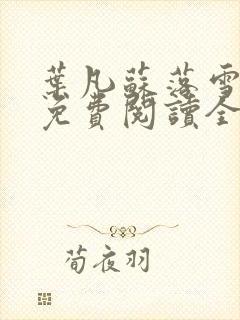 葉凡蘇落雪
免費閱讀全
荀夜羽